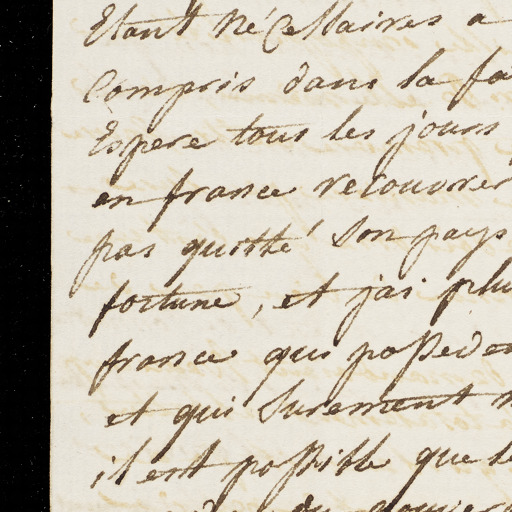 Etant nécessaires a
Compris dans la fa
Espere tous les jours
en france recouvrer
pas quitté son pays
fortune, et j'ai plu
france qui posseden
et qui surement n
il est possible que le